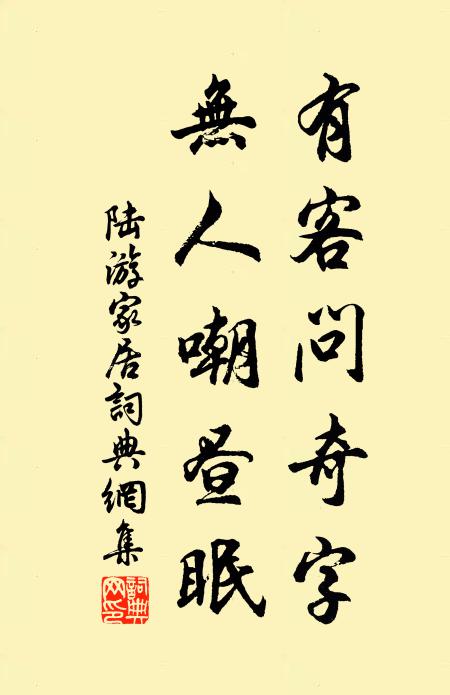 有客问奇字
無人嘲昼眠
陆游家居詞典網集
詞典网印